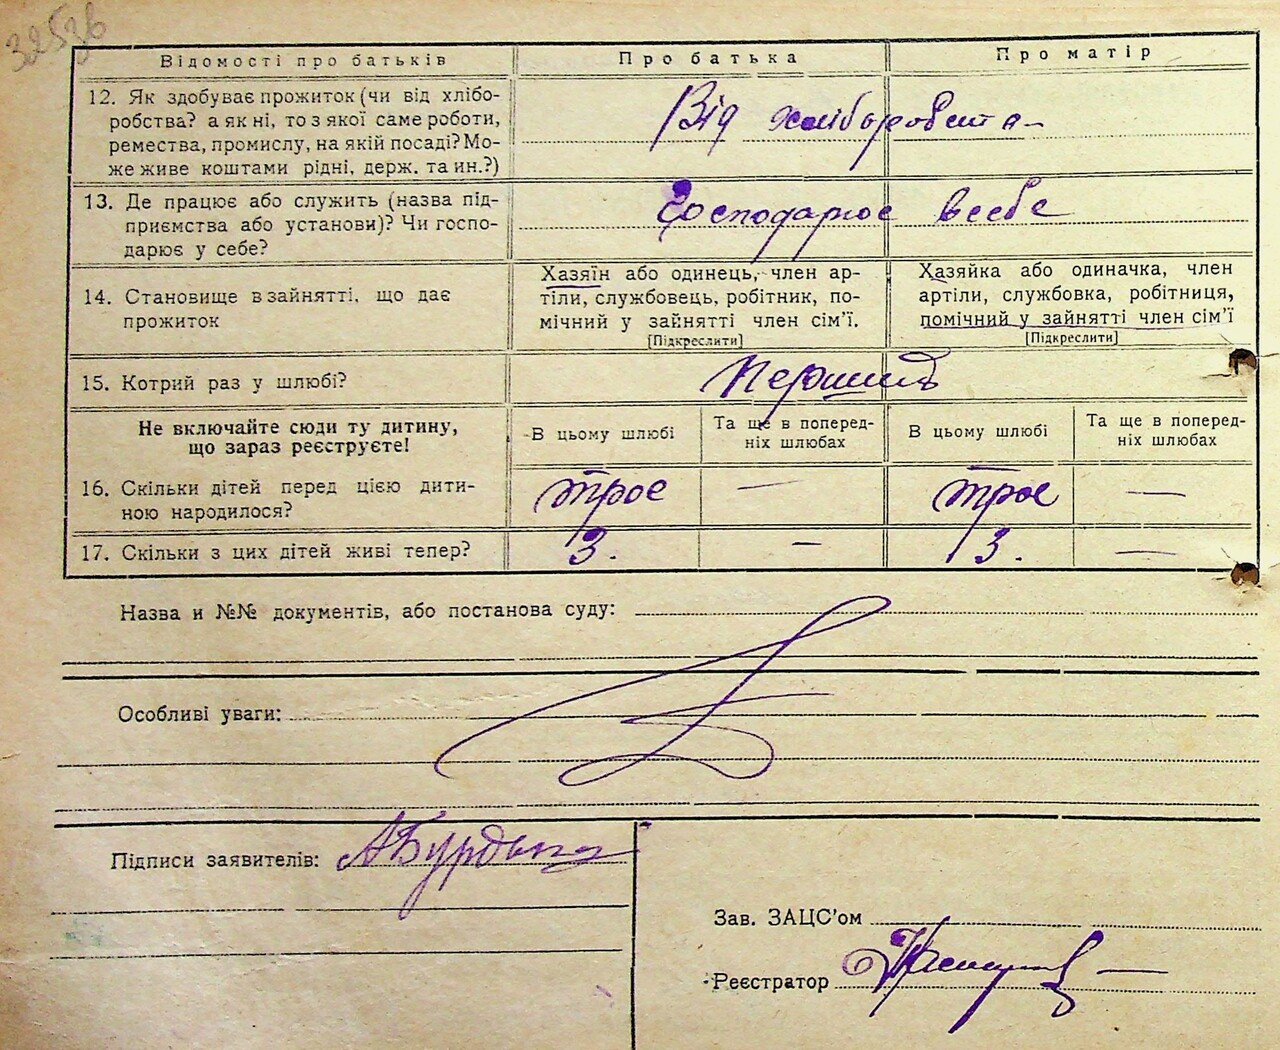 32536
Відомості про батьків Про батька Про матір
12. Як здобуває прожиток (чи від хлібо-
робства? а як ні, то з якої саме роботи,
ремества, промислу, на якій посаді? Мо-
же живе коштами рідні, держ. та ин.?)
Від хліборобства
13. Де працює або служить (назва під-
приємства або установи)? Чи госпо-
дарює у себе?
Господарює в себе
14. Становище в зайнятті, що дає
прожиток
Хазяїн або одинець, член ар-
тіли, службовець, робітник, по-
мічний у зайнятті член сім'ї.
[Підкреслити]
Хазяйка або одиначка, член
артіли, службовка, робітниця,
помічний у зайнятті член сім'ї
[Підкреслити]
15. Котрий раз у шлюбі?
Перший
Не включайте сюди ту дитину,
що зараз реєструєте!
В цьому шлюбі
Та ще в поперед-
ніх шлюбах
В цьому шлюбі
Та ще в поперед-
ніх шлюбах
16. Скільки дітей перед цією дити-
ною народилося?
троє — троє —
17. Скільки з цих дітей живі тепер? 3. — 3. —
Назва и №№ документів, або постанова суду:
Особливі уваги:
Підписи заявителів:
Зав. ЗАЦС'ом
Реєстратор